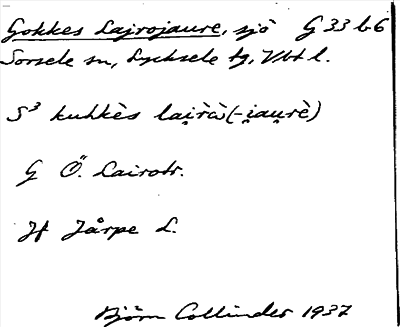 Gokkes Lajrojaure, sjö G 33 b 6
Sorsele sn, Lycksele tg, Vbt l.
S³ kuhkès lai̯rò̀ (-i̯au̯rè)
G Ö. Lairotr.
Jf Jårpe L.
Björn Collinder 1937